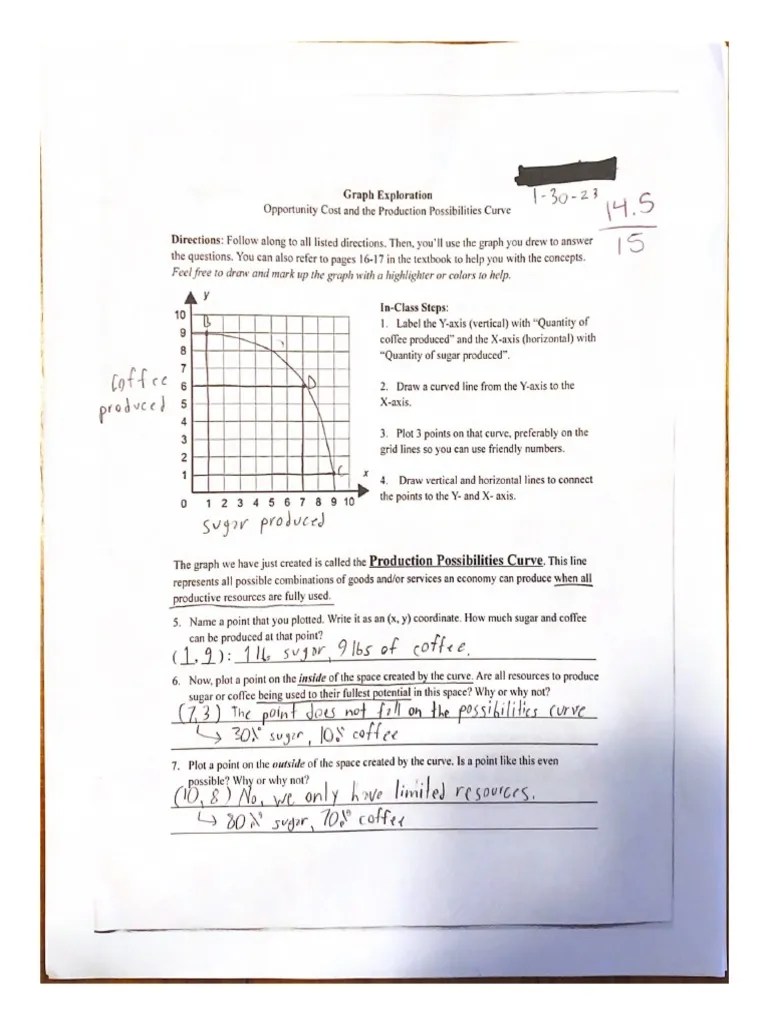 1-30-23
Graph Exploration
Opportunity Cost and the Production Possibilities Curve
14.5
15
Directions: Follow along to all listed directions. Then, you'll use the graph you drew to answer
the questions. You can also refer to pages 16-17 in the textbook to help you with the concepts.
Feel free to draw and mark up the graph with a highlighter or colors to help.
y
10
9
8
7
6
5
4
3
2
1
0 1 2 3 4 5 6 7 8 9 10
x
B
D
C
Coffee
produced
sugar produced
In-Class Steps:
1. Label the Y-axis (vertical) with "Quantity of
coffee produced" and the X-axis (horizontal) with
"Quantity of sugar produced".
2. Draw a curved line from the Y-axis to the
X-axis.
3. Plot 3 points on that curve, preferably on the
grid lines so you can use friendly numbers.
4. Draw vertical and horizontal lines to connect
the points to the Y- and X- axis.
The graph we have just created is called the Production Possibilities Curve. This line
represents all possible combinations of goods and/or services an economy can produce when all
productive resources are fully used.
5. Name a point that you plotted. Write it as an (x, y) coordinate. How much sugar and coffee
can be produced at that point?
(1, 9): 1 lb sugar, 9 lbs of coffee.
6. Now, plot a point on the inside of the space created by the curve. Are all resources to produce
sugar or coffee being used to their fullest potential in this space? Why or why not?
(7,3) The point does not fall on the possibilities curve
↳ sugar, coffee
7. Plot a point on the outside of the space created by the curve. Is a point like this even
possible? Why or why not?
(10, 8) No, we only have limited resources.
↳ sugar, coffee